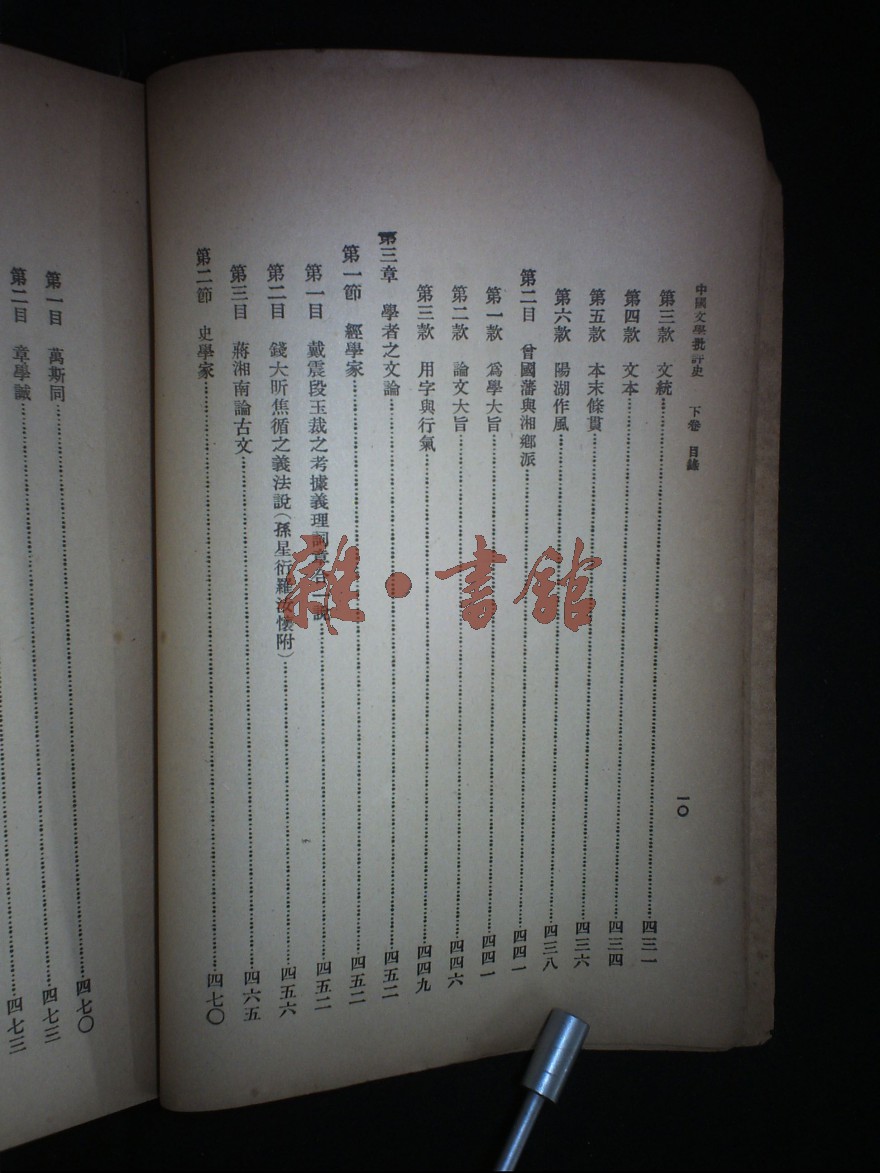 中國文學批評史 下卷 目錄 一〇
第三款 文統………四三一
第四款 文本………四三四
第五款 本末條貫………四三六
第六款 陽湖作風………四三八
第二目 曾國藩與湘鄉派………四四一
第一款 爲學大旨………四四一
第二款 論文大旨………四四六
第三款 用字與行氣………四四九
第三章 學者之文論………四五二
第一節 經學家………四五二
第一目 戴震段玉裁之考據義理詞章合一說………四五二
第二目 錢大昕焦循之義法說(孫星衍羅汝懷附)………四五六
第三目 蔣湘南論古文………四六五
第二節 史學家………四七〇
第一目 萬斯同………四七〇
第二目 章學誠………四七三
四七三
雜·書館